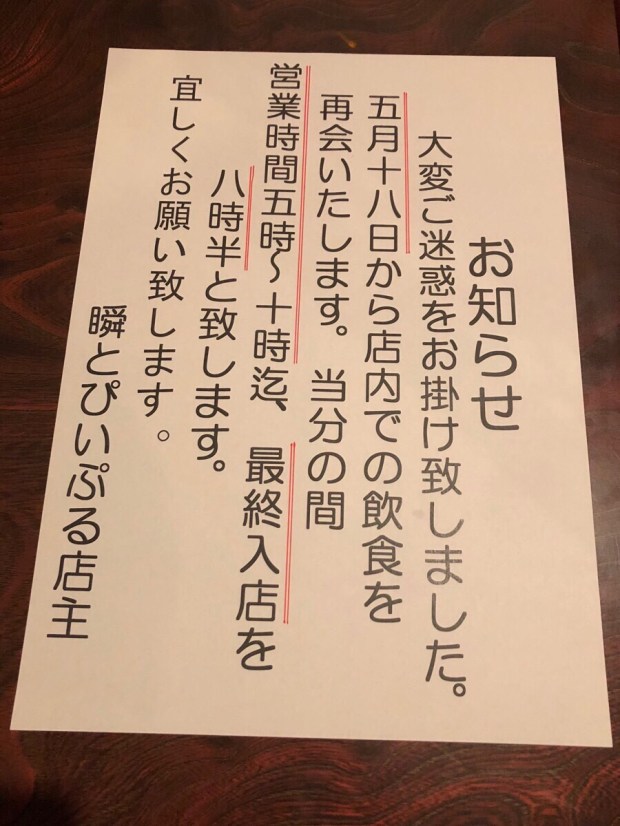 お知らせ
大変ご迷惑をお掛け致しました。
五月十八日から店内での飲食を
再会いたします。当分の間
営業時間五時～十時迄、最終入店を
八時半と致します。
宜しくお願い致します。
瞬とぴいぷる店主